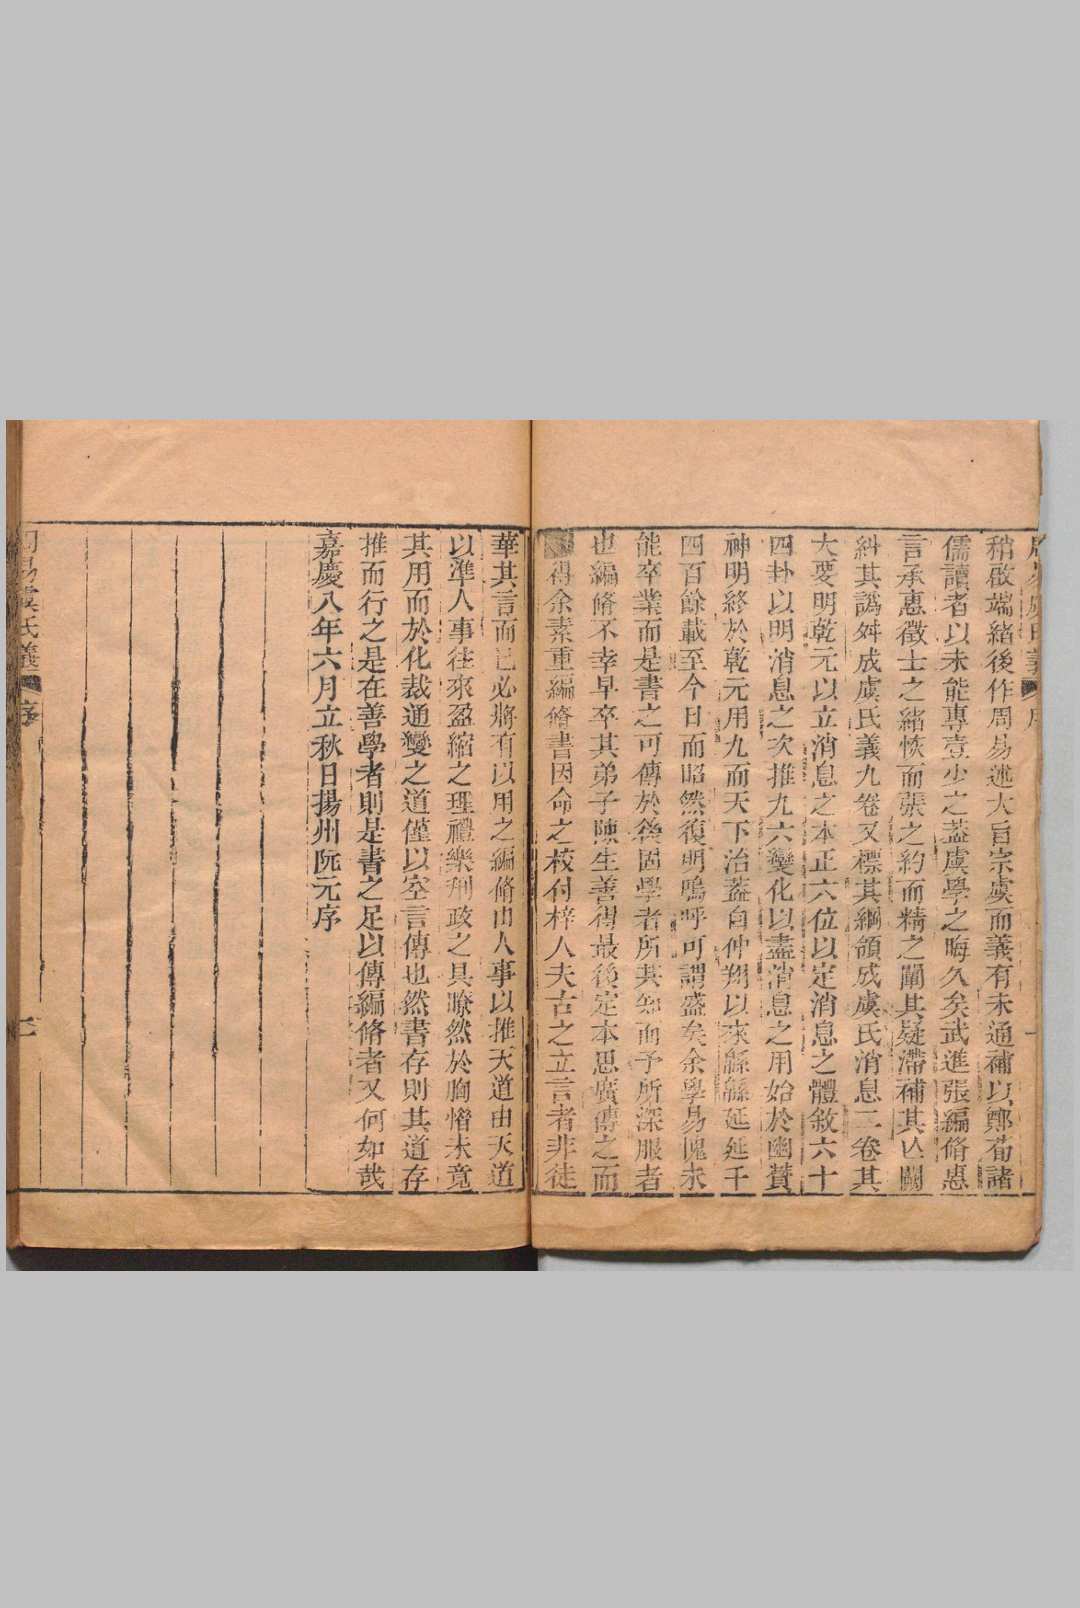 稍啟端緒後作周易述大旨宗虞而義有未通補以鄭荀諸
儒讀者以未能專壹少之蓋虞學之晦久矣武進張編脩惠
言承惠徵士之緒恢而張之約而精之闡其疑滯補其亾闕
糾其譌舛成虞氏義九卷又標其綱領成虞氏消息二卷其
大要明乾元以立消息之本正六位以定消息之體敘六十
四卦以明消息之次推九六變化以盡消息之用始於幽贊
神明終於乾元用九而天下治蓋自仲翔以來緜緜延延千
四百餘載至今日而昭然復明嗚呼可謂盛矣余學易愧未
能卒業而是書之可傳於後固學者所共知而予所深服者
也編脩不幸早卒其弟子陳生善得最後定本思廣傳之而
得余素重編脩書因命之校付梓人夫古之立言者非徒
華其言而已必將有以用之編脩由人事以推天道由天道
以準人事往來盈縮之理禮樂刑政之具瞭然於胸惜未竟
其用而於化裁通變之道僅以空言傳也然書存則其道存
推而行之是在善學者則是書之足以傳編脩者又何如哉
嘉慶八年六月立秋日揚州阮元序
周易虞氏義 序 二